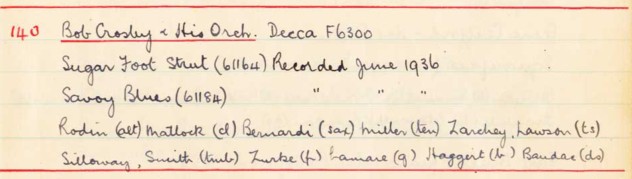 140 Bob Crosby & His Orch. Decca F6300
Sugar Foot Strut (61164) Recorded June 1936
Savoy Blues (61184) " " "
Rodin (alt) Matlock (cl) Bernardi (sax) Miller (ten) Zarchey, Lawson (ts)
Silloway, Smith (tmb) Zurke (p) Lamare (g) Haggert (b) Baudac (ds)